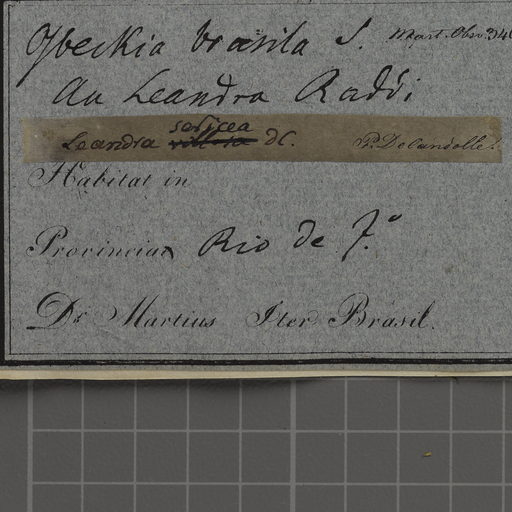 Osbeckia brasila S. Mart. Obs. 340
An Leandra Raddi
Leandra sericea DC. P. Decandolle!
Habitat in
Provincia Rio de J.º
Dr. Martius Iter Brasil.